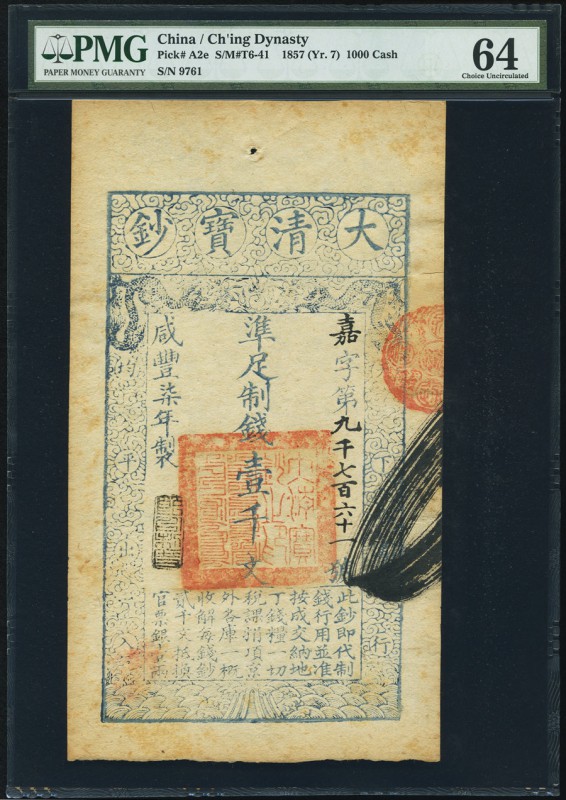 PMG
PAPER MONEY GUARANTY
China / Ch'ing Dynasty
Pick# A2e S/M#T6-41 1857 (Yr. 7) 1000 Cash
S/N 9761
64
Choice Uncirculated
大清寶鈔
嘉字第九千七百六十一號
準足制錢壹千文
咸豐柒年製
天下
行
平出入
此鈔即代制
錢行用並准
按成交納地
丁錢糧一切
稅課捐項京
外各庫一概
收解每錢鈔
貳千文抵換
官票銀壹兩